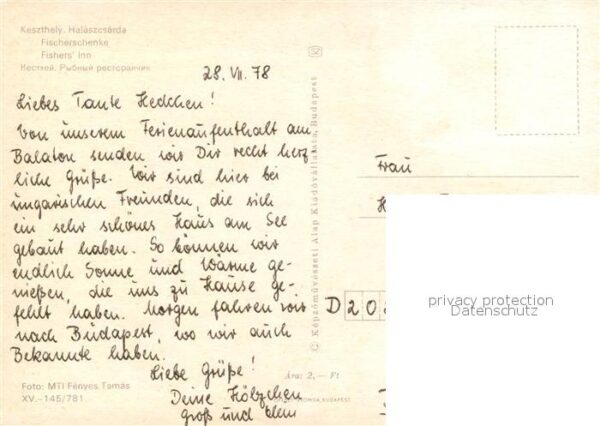 Keszthely. Halászcsárda
Fischerschenke
Fishers' Inn
Кестхей. Рыбный ресторанчик
28. VII. 78
Liebes Tante Hedchen!
Von unserem Ferienaufenthalt am
Balaton senden wir Dir recht herz
liche Grüße. Wir sind hier bei
ungarischen Freunden, die sich
ein sehr schönes Haus am See
gebaut haben. So können wir
endlich Sonne und Wärme ge-
nießen, die uns zu Hause ge-
fehlt haben. Morgen fahren wir
nach Budapest, wo wir auch
Bekannte haben.
Liebe Grüße!
Deine Hölzchen
groß und klein
Foto: MTI Fényes Tamás
XV.-145/781
© Képzőművészeti Alap Kiadóvállalata, Budapest
Ára: 2,— Ft
BUDAPEST
Frau
D 20
privacy protection
Datenschutz